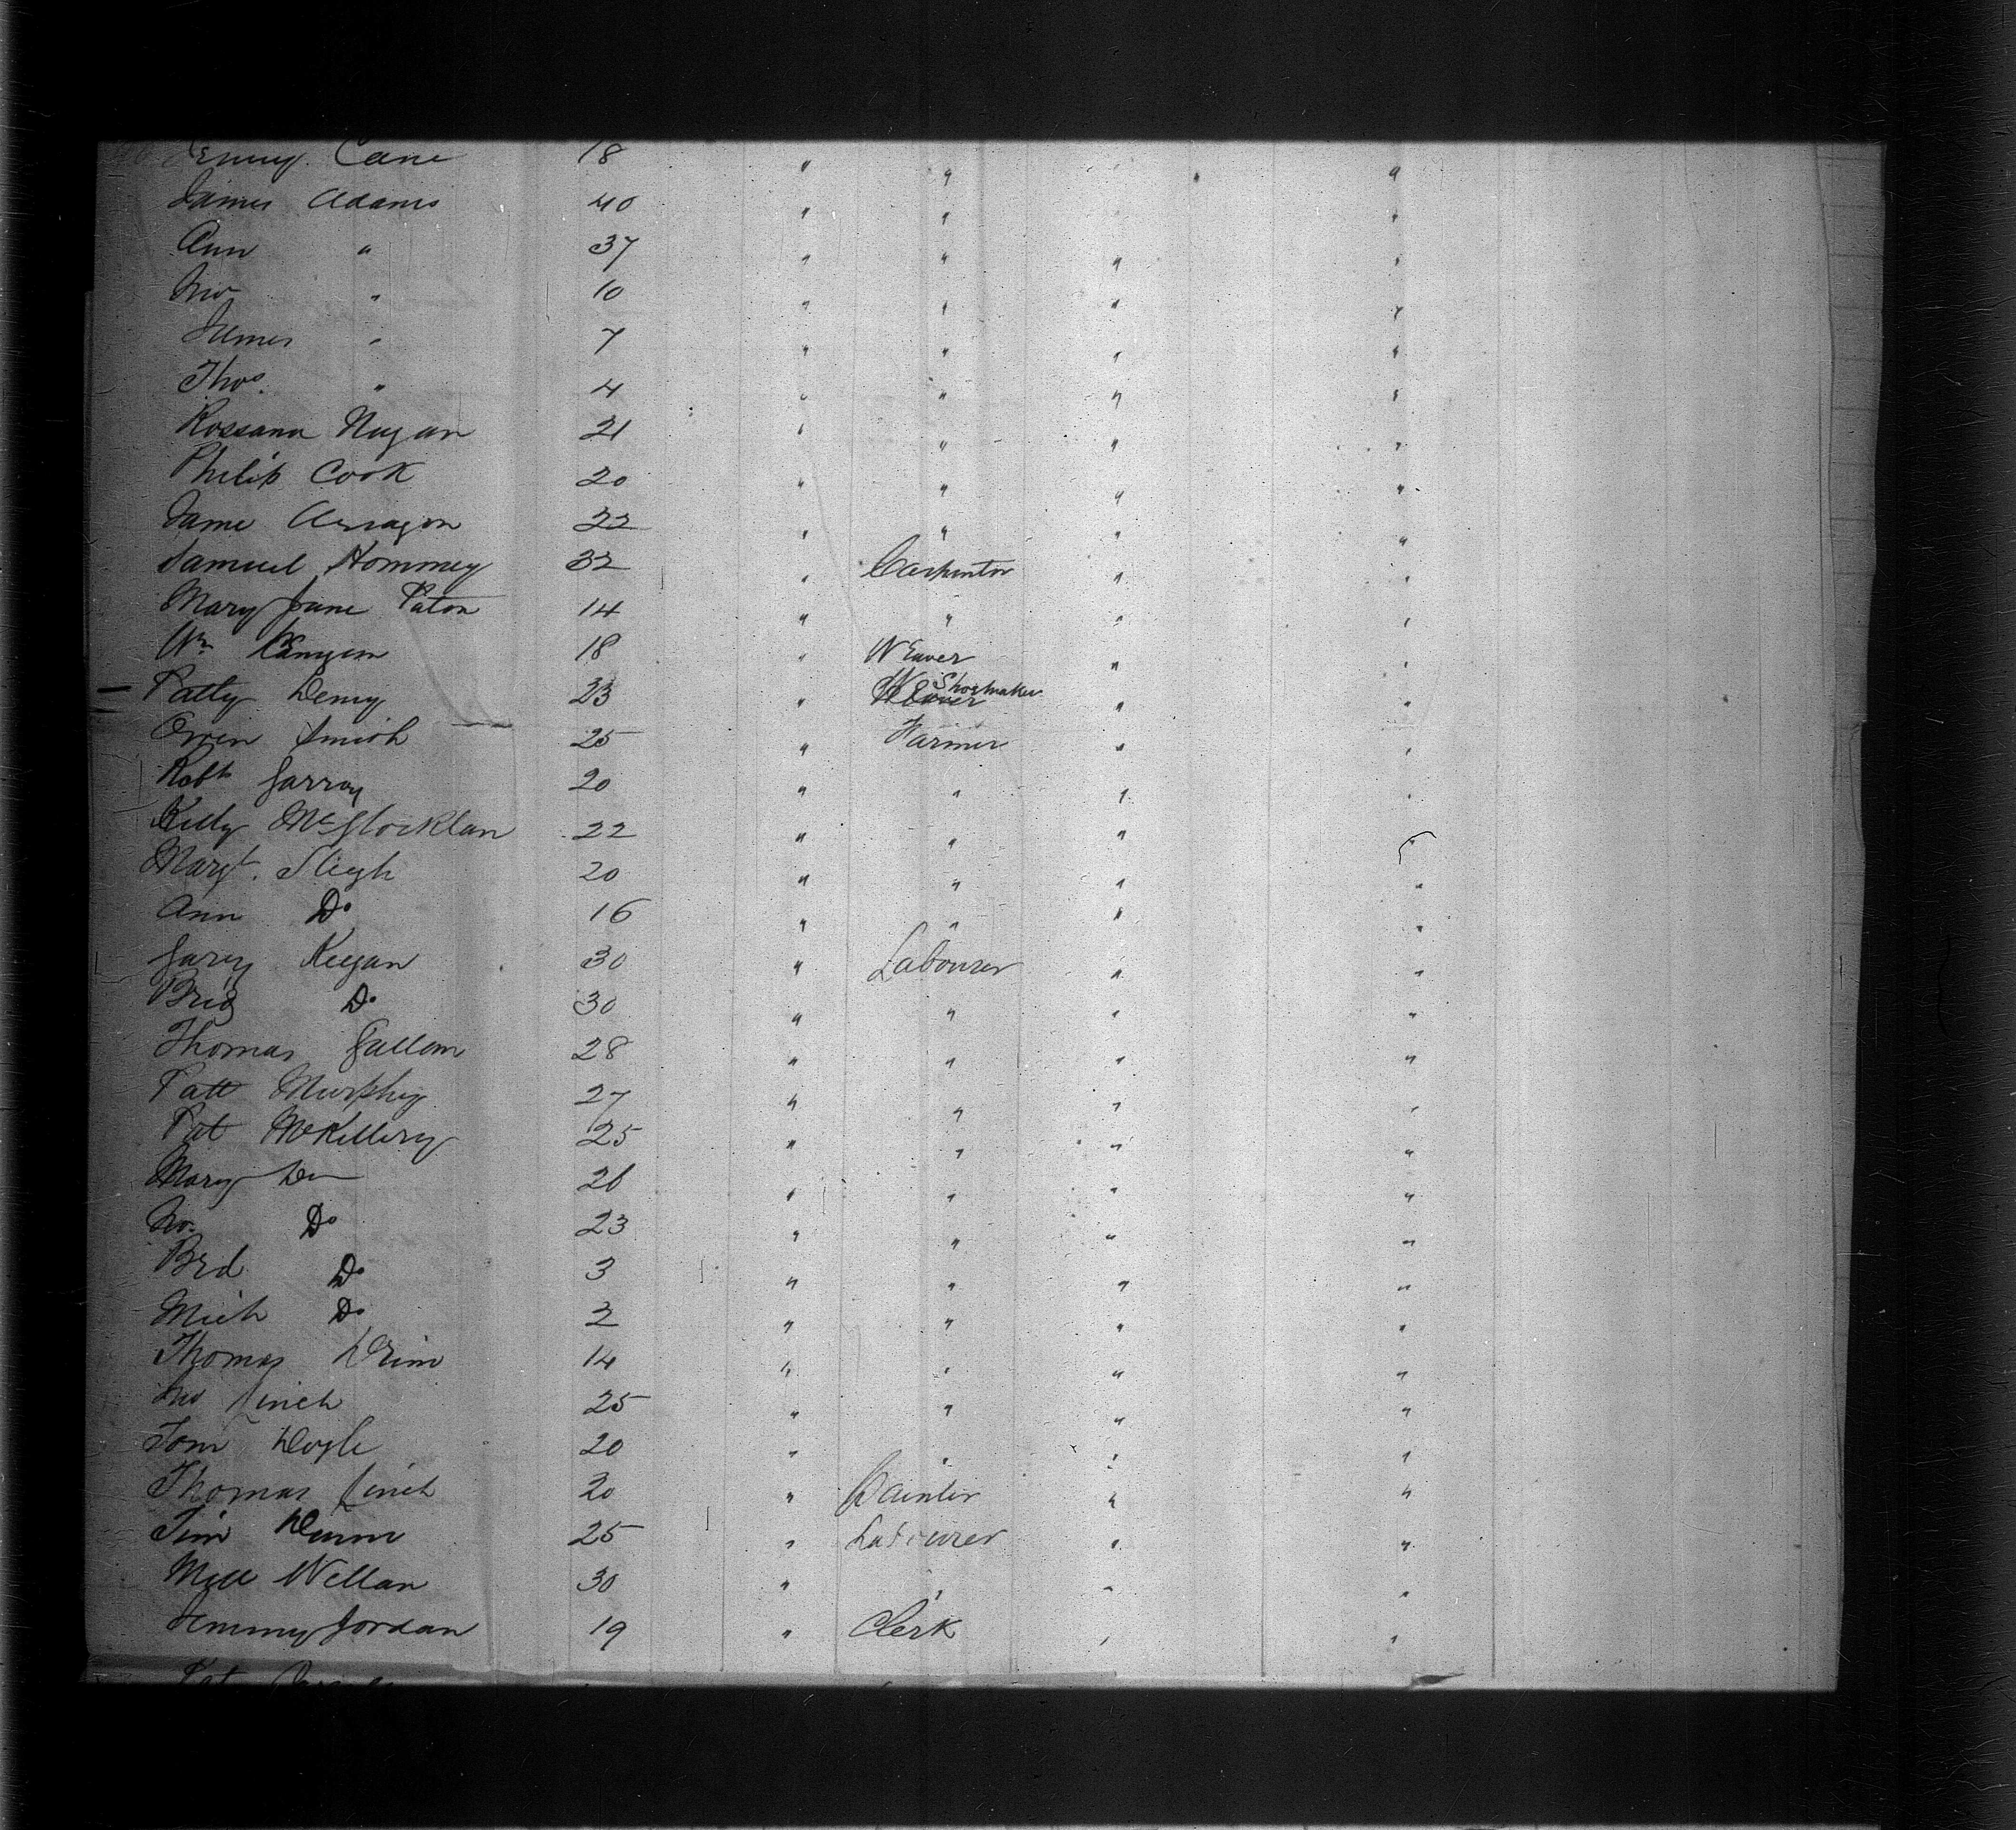 Jenny. Cane 18 " " "
James Adams 40 " " "
Ann " 37 " " " "
Jno " 10 " " " "
James " 7 " " " "
Thos. " 4 " " " "
Rossana Nugan 21 " " " "
Philip Cook 20 " " " "
Jame Arragon 22 " " " "
Samuel Hommey 32 " Carpintor " "
Mary Jane Paton 14 " " " "
Wm 18 " Weaver " "
Patty Deny 23 " Weaver Shoemaker " "
Owen Smith 25 " Farmer " "
Robt Garray 20 " " " "
Kelly McGlocklan 22 " " " "
Margt. Sligh 20 " " " "
Ann Do 16 " " " "
Garey Keegan 30 " Labourer " "
Brig Do 30 " " " "
Thomas Gallom 28 " " " "
Patt Murphy 27 " " " "
Pat McKillery 25 " " " "
Mary Do 26 " " " "
Jno. Do 23 " " " "
Brd Do 3 " " " "
Mich Do 2 " " " "
Thomas 14 " " " "
Jno Linch 25 " " " "
Tom Doyle 20 " " " "
Thomas Linch 20 " Painter " "
Tim Dunn 25 " Labourer " "
Wellan 30 " " " "
Jemmy Jordan 19 " Clerk " "
Pat